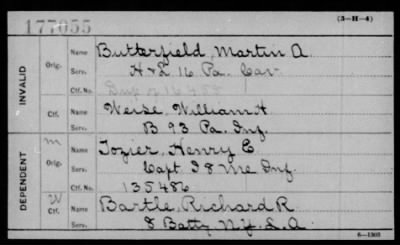 177055
(3-H-4)
INVALID
Orig.
Name Butterfield, Martin A.
Serv. H & L 16 Pa. Cav.
Ctf. No. Dup of
Ctf.
Name Weise, William H
Serv. B 93 Pa. Inf.
DEPENDENT
M
Orig.
Name Tozier, Henry E
Serv. Capt I 8 Me Inf.
Ctf. No. 135486
W
Ctf.
Name Bartle, Richard R.
Serv. 8 Batty N.Y. L. A.
6-1303